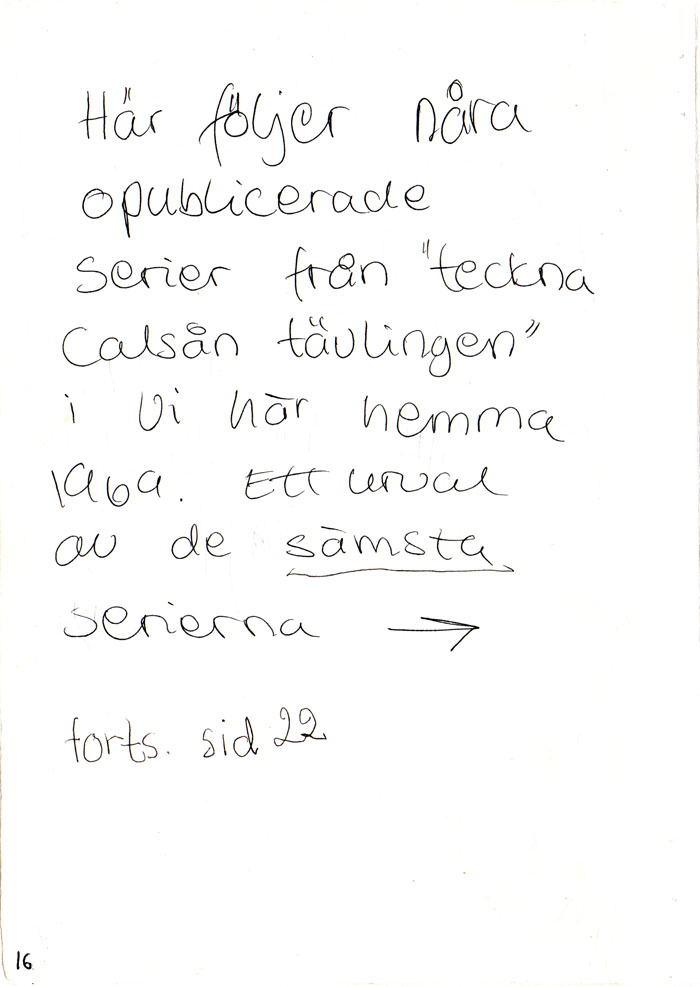 Här följer nåra
opublicerade
serier från "teckna
Calsån tävlingen"
i Vi här hemma
1969. Ett urval
av de sämsta
serierna →
forts. sid 22
16